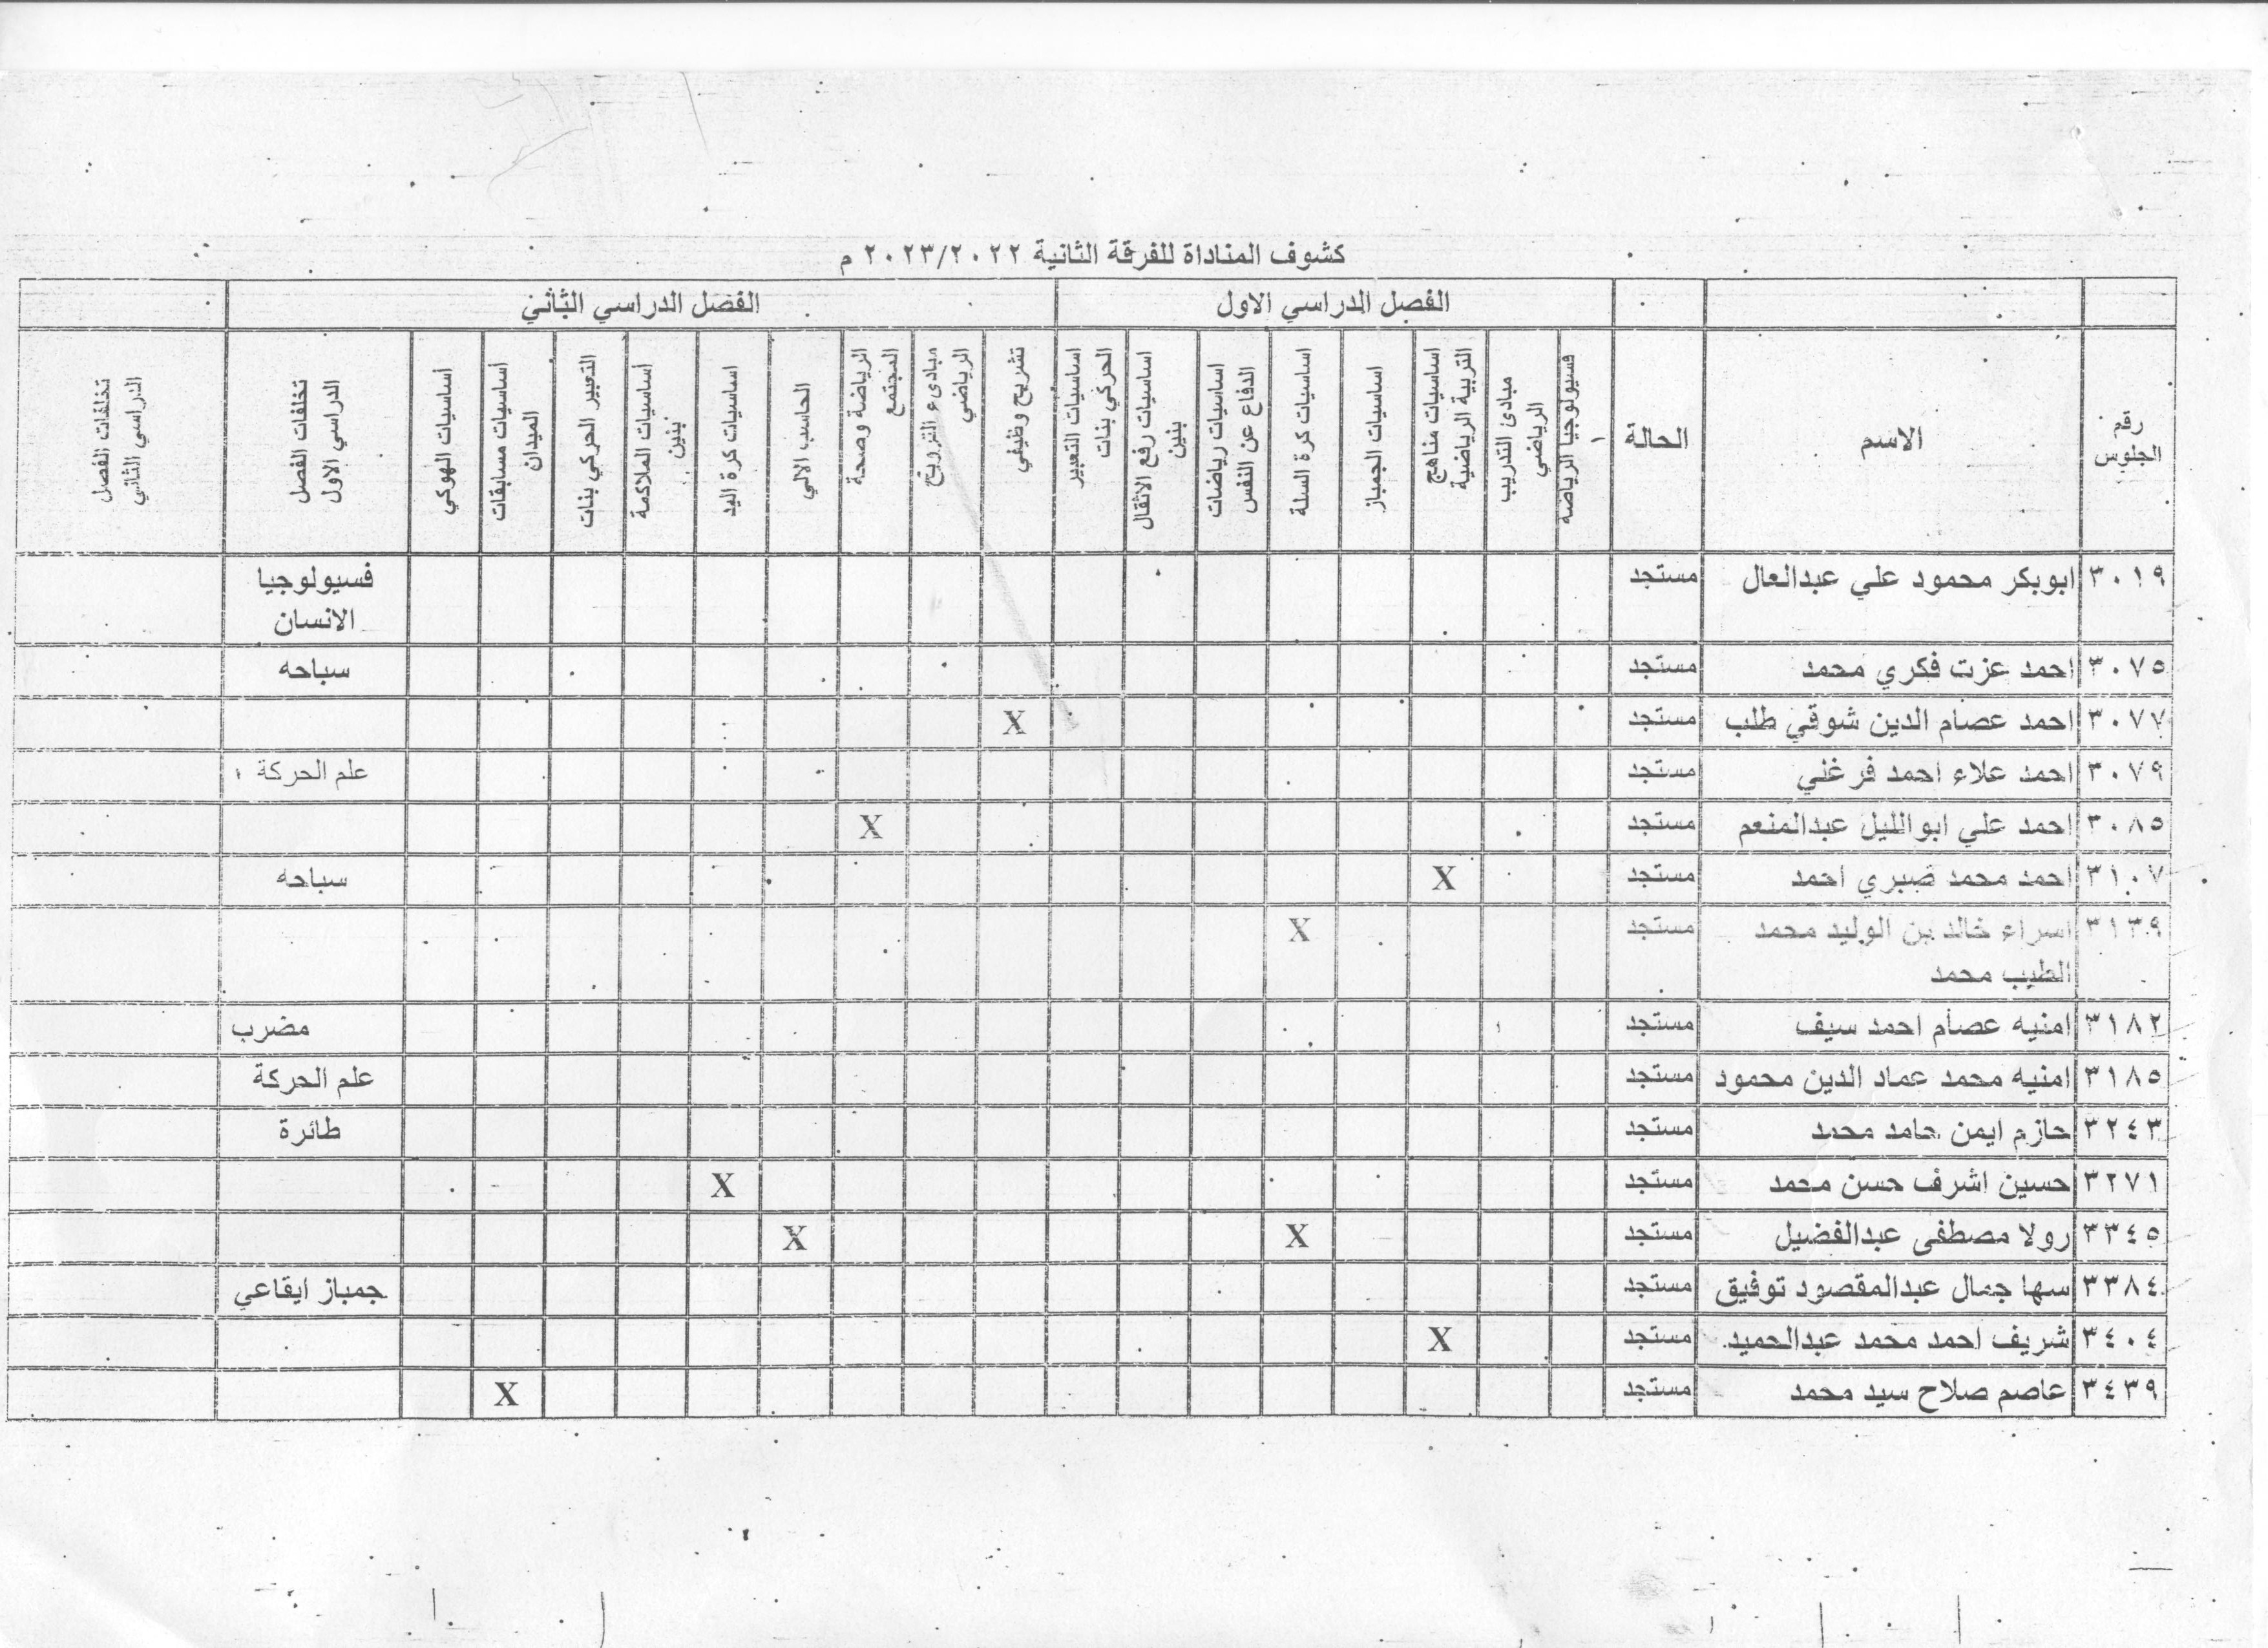 كشوف المناداة للفرقة الثانية ٢٠٢٣/٢٠٢٢ م
الفصل الدراسي الاول
الفصل الدراسي الثاني
رقم الجلوس
الاسم
الحالة
فسيولوجيا الرياضة ١
مبادئ التدريب الرياضي
اساسيات مناهج التربية الرياضية
اساسيات الجمباز
اساسيات كرة السلة
اساسيات رياضات الدفاع عن النفس
اساسيات رفع الاثقال بنين
اساسيات التعبير الحركي بنات
تشريح وظيفي
مبادىء الترويح الرياضي
الرياضة وصحة المجتمع
الحاسب الالي
اساسيات كرة اليد
أساسيات الملاكمة بنين
التعبير الحركي بنات
أساسيات مسابقات الميدان
أساسيات الهوكي
تخلفات الفصل الدراسي الاول
تخلفات الفصل الدراسي الثاني
٣٠١٩ ابوبكر محمود علي عبدالعال مستجد فسيولوجيا
الانسان
٣٠٧٥ احمد عزت فكري محمد مستجد سباحه
٣٠٧٧ احمد عصام الدين شوقي طلب مستجد X
٣٠٧٩ احمد علاء احمد فرغني مستجد علم الحركة ١
٣٠٨٥ احمد علي ابوالليل عبدالمنعم مستجد X
٣١٠٧ احمد محمد صبري احمد مستجد X سباحه
٣١٣٩ اسراء خالد بن الوليد محمد مستجد X
الطيب محمد
٣١٨٢ امنيه عصام احمد سيف مستجد مضرب
٣١٨٥ امنيه محمد عماد الدين محمود مستجد علم الحركة
٣٢٤٣ حازم ايمن حامد محمد مستجد طائرة
٣٢٧١ حسين اشرف حسن محمد مستجد X
٣٣٤٥ رولا مصطفى عبدالفضيل مستجد X X
٣٣٨٤ سها جمال عبدالمقصود توفيق مستجد جمباز ايقاعي
٣٤٠٤ شريف احمد محمد عبدالحميد مستجد X
٣٤٣٩ عاصم صلاح سيد محمد مستجد X